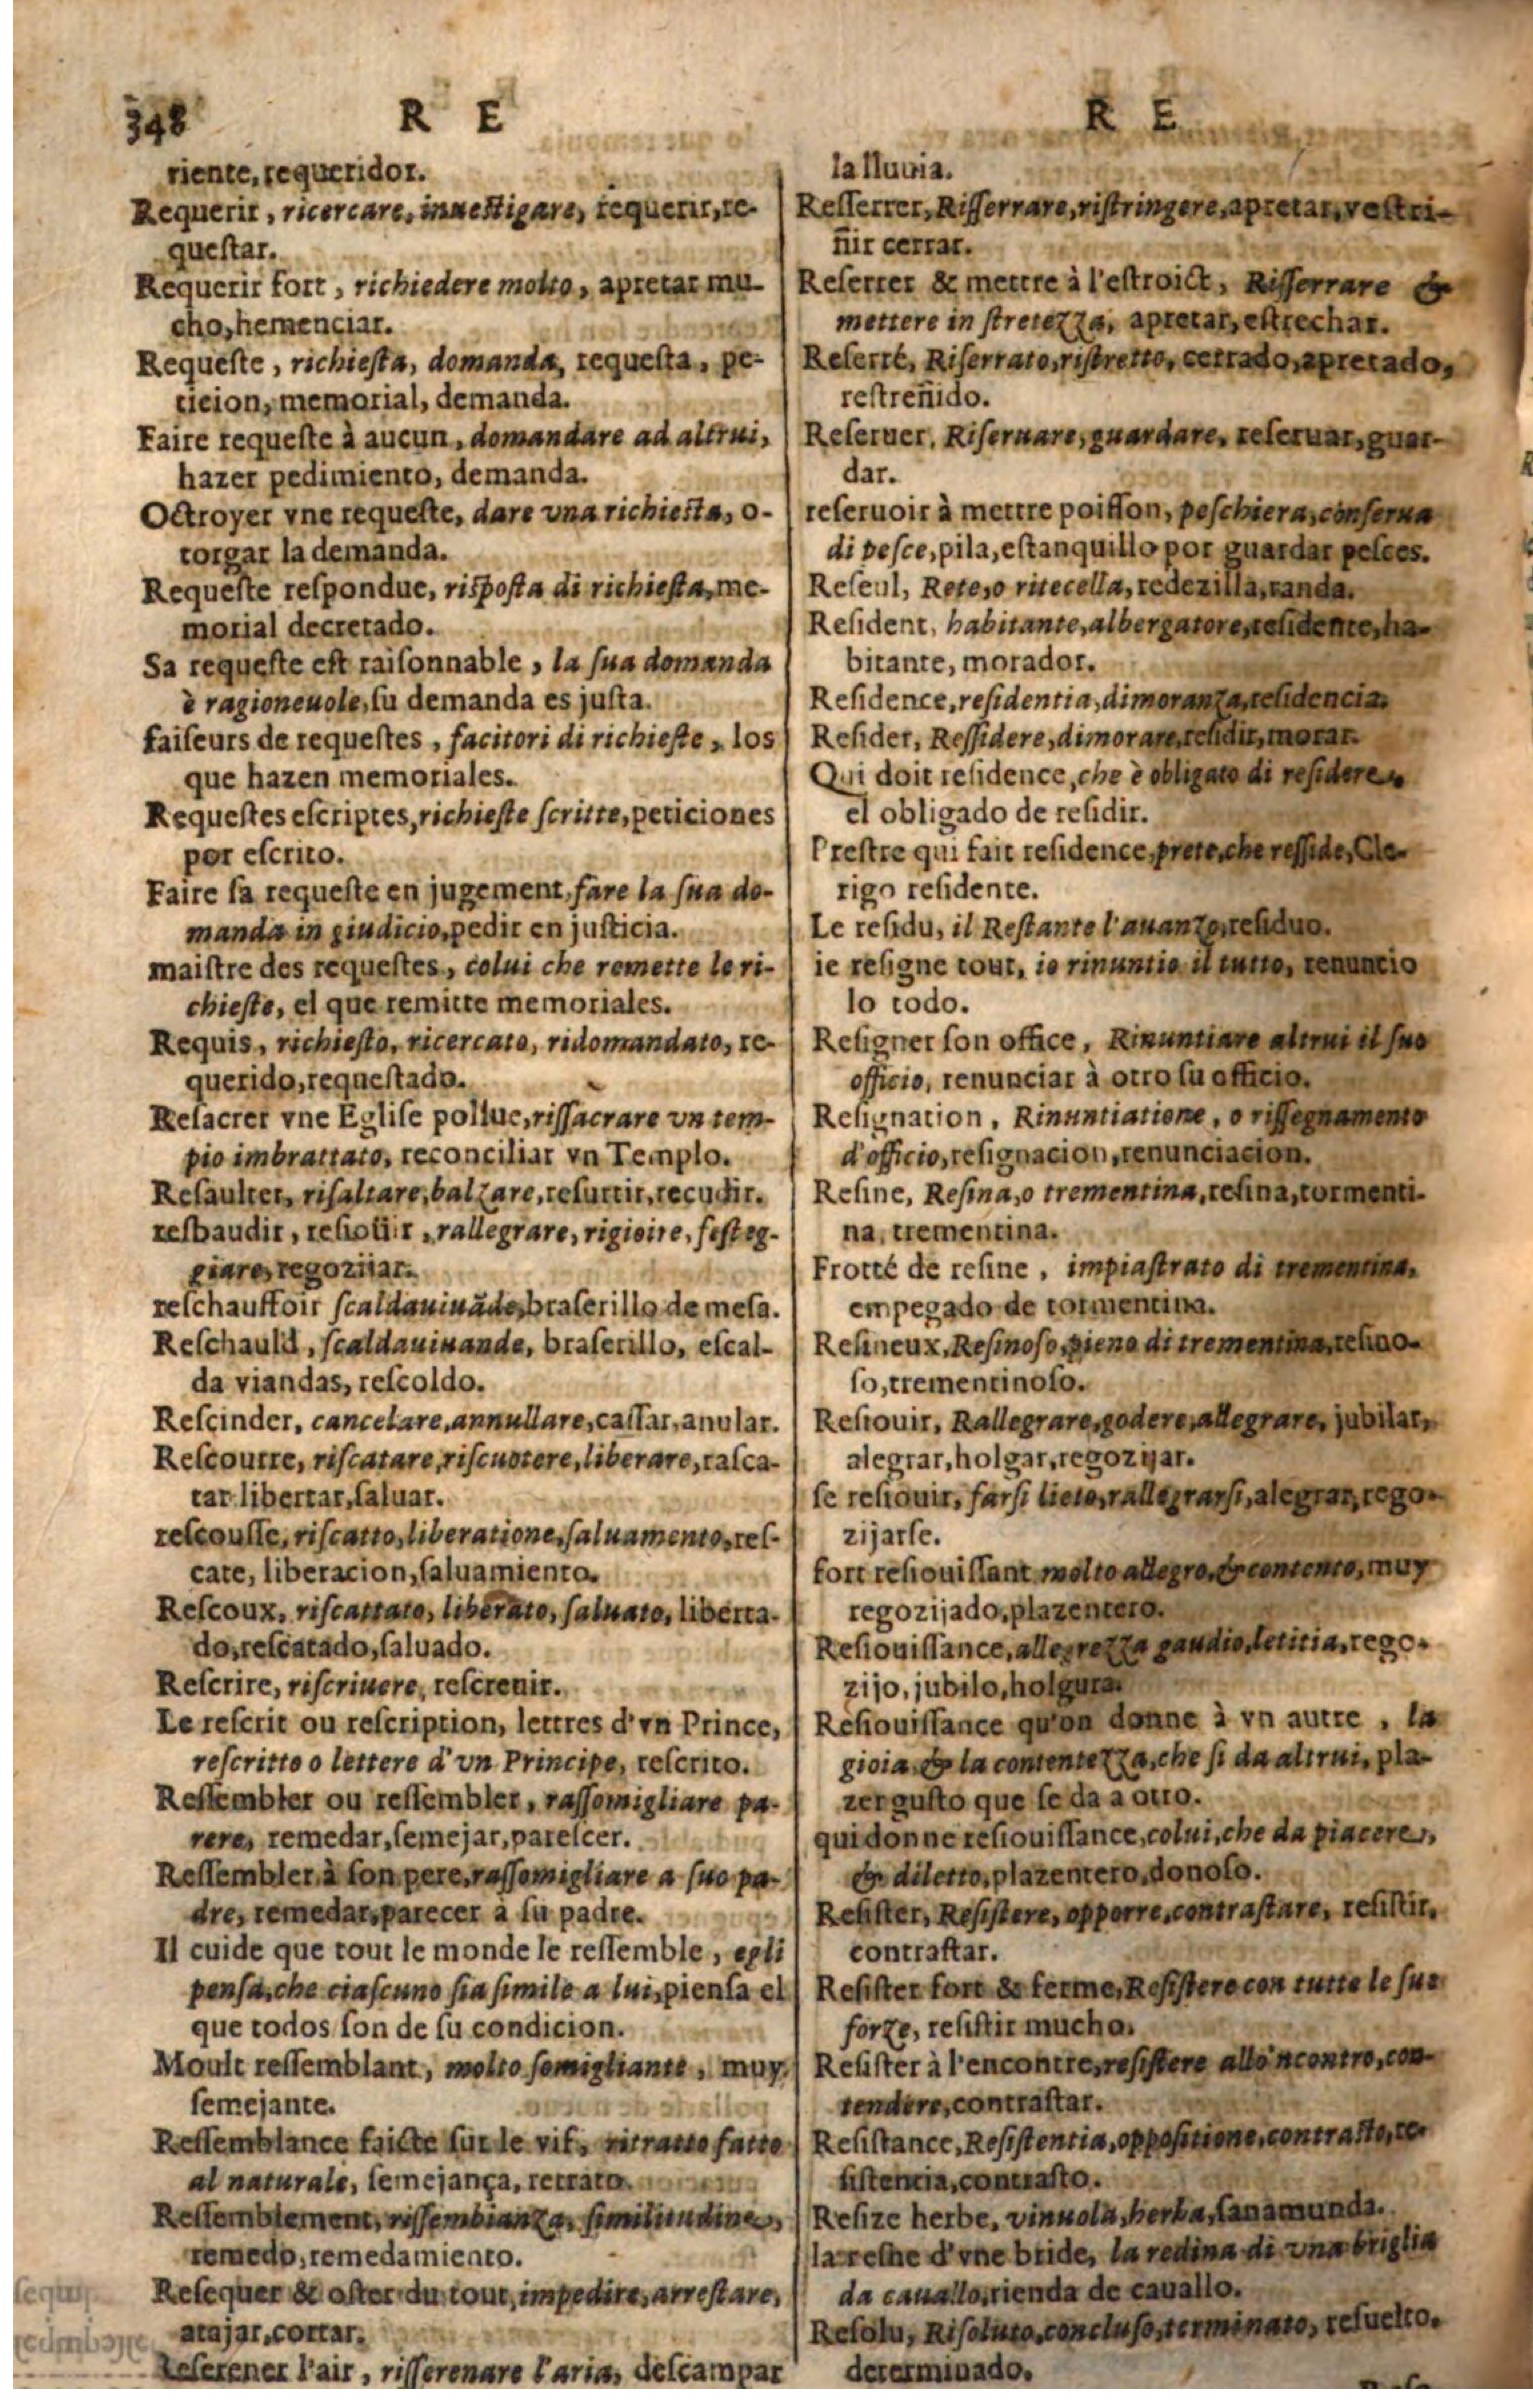 348
R E
riente, requeridor.
Requerir, ricercare, inuestigare, requerir, re-
questar.
Requerir fort, richiedere molto, apretar mu-
cho, hemenciar.
Requeste, richiesta, domanda, requesta, pe-
ticion, memorial, demanda.
Faire requeste à aucun, domandare ad altrui,
hazer pedimiento, demanda.
Octroyer vne requeste, dare vna richiesta, o-
torgar la demanda.
Requeste respondue, risposta di richiesta, me-
morial decretado.
Sa requeste est raisonnable, la sua domanda
è ragioneuole, su demanda es justa.
faiseurs de requestes, facitori di richieste, los
que hazen memoriales.
Requestes escriptes, richieste scritte, peticiones
por escrito.
Faire sa requeste en jugement, fare la sua do-
manda in giudicio, pedir en justicia.
maistre des requestes, colui che remette le ri-
chieste, el que remitte memoriales.
Requis, richiesto, ricercato, ridomandato, re-
querido, requestado.
Resacrer vne Eglise pollue, rissacrare vn tem-
pio imbrattato, reconciliar vn Templo.
Resaulter, risaltare, balzare, resurtir, recudir.
resbaudir, resioüir, rallegrare, rigioire, festeg-
giare, regoziiar.
reschauffoir scaldauiuāde, braserillo de mesa.
Reschauld, scaldauiuande, braserillo, escal-
da viandas, rescoldo.
Rescinder, cancelare, annullare, cassar, anular.
Rescourre, riscatare, riscuotere, liberare, rasca-
tar libertar, saluar.
rescousse, riscatto, liberatione, saluamento, res-
cate, liberacion, saluamiento.
Rescoux, riscattato, liberato, saluato, liberta-
do, rescatado, saluado.
Rescrire, riscriuere, rescreuir.
Le rescrit ou rescription, lettres d'vn Prince,
rescritto o lettere d'vn Principe, rescrito.
Ressembler ou ressembler, rassomigliare pa-
rere, remedar, semejar, parescer.
Ressembler à son pere, rassomigliare a suo pa-
dre, remedar, parecer à su padre.
Il cuide que tout le monde le ressemble, egli
pensa, che ciascuno sia simile a lui, piensa el
que todos son de su condicion.
Moult ressemblant, molto somigliante, muy
semejante.
Ressemblance faicte sur le vif, ritratto fatto
al naturale, semejança, retrato.
Ressemblement, rissembianza, similitudine,
remedo, remedamiento.
Resequer & oster du tout, impedire, arrestare,
atajar, cortar.
Reserener l'air, risserenare l'aria, descampar
R E
la lluuia.
Resserrer, Risserrare, ristringere, apretar, restri-
ñir cerrar.
Reserrer & mettre à l'estroict, Risserrare &
mettere in stretezza, apretar, estrechar.
Reserré, Riserrato, ristretto, cerrado, apretado,
restreñido.
Reseruer, Riseruare, guardare, reseruar, guar-
dar.
reseruoir à mettre poisson, peschiera, conserua
di pesce, pila, estanquillo por guardar pesces.
Reseul, Rete, o ritecella, redezilla, randa.
Resident, habitante, albergatore, residente, ha-
bitante, morador.
Residence, residentia, dimoranza, residencia.
Resider, Ressidere, dimorare, residir, morar.
Qui doit residence, che è obligato di residere,
el obligado de residir.
Prestre qui fait residence, prete, che resside, Cle-
rigo residente.
Le residu, il Restante l'auanzo, residuo.
ie resigne tout, io rinuntio il tutto, renuncio
lo todo.
Resigner son office, Rinuntiare altrui il suo
officio, renunciar à otro su officio.
Resignation, Rinuntiatione, o rissegnamento
d'officio, resignacion, renunciacion.
Resine, Resina, o trementina, resina, tormenti-
na, trementina.
Frotté de resine, impiastrato di trementina,
empegado de tormentina.
Resineux, Resinoso, pieno di trementina, resino-
so, trementinoso.
Resiouir, Rallegrare, godere, allegrare, jubilar,
alegrar, holgar, regozijar.
se resiouir, farsi lieto, rallegrarsi, alegrar, rego-
zijarse.
fort resiouissant molto allegro, & contento, muy
regozijado, plazentero.
Resiouissance, allegrezza gaudio, letitia, rego-
zijo, jubilo, holgura.
Resiouissance qu'on donne à vn autre, la
gioia & la contentezza, che si da altrui, pla-
zer gusto que se da a otro.
qui donne resiouissance, colui, che da piacere,
& diletto, plazentero, donoso.
Resister, Resistere, opporre, contrastare, resistir,
contrastar.
Resister fort & ferme, Resistere con tutte le sue
forze, resistir mucho.
Resister à l'encontre, resistere allo'ncontro, con-
tendere, contrastar.
Resistance, Resistentia, oppositione, contrasto, re-
sistencia, contrasto.
Resize herbe, vinuola, herba, sanamunda.
la resne d'vne bride, la redina di vna briglia
da cauallo, rienda de cauallo.
Resolu, Risoluto, concluso, terminato, resuelto.
determinado.